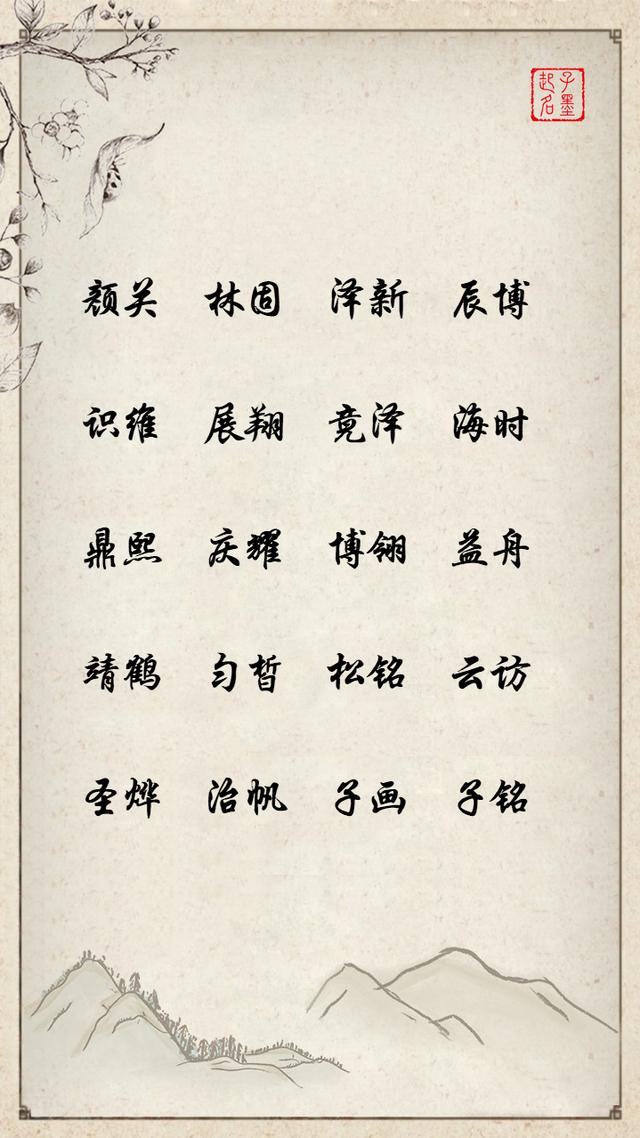 子墨
起名
颜关 林固 泽新 辰博
识维 展翔 竟泽 海时
鼎熙 庆耀 博翎 益舟
靖鹤 匀皙 松铭 云访
圣烨 治帆 子画 子铭